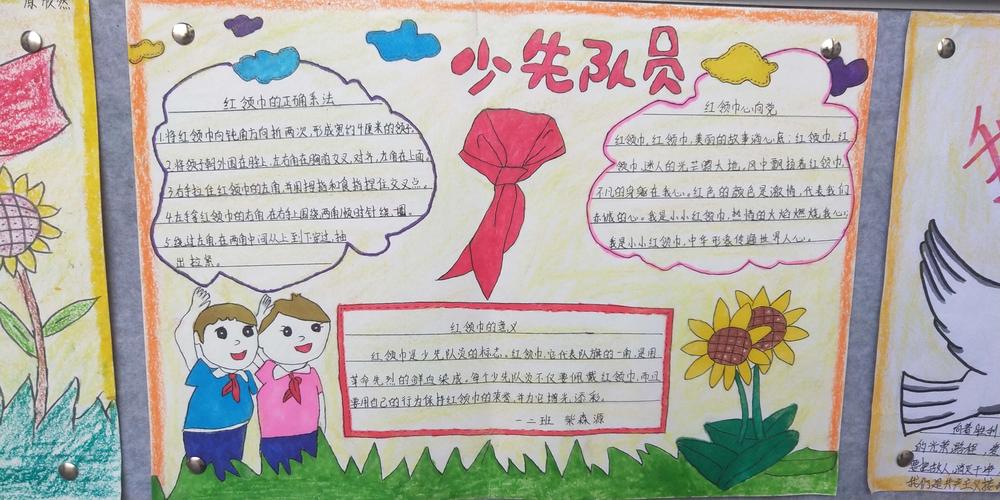 少先队员
红领巾的正确系法
1.将红领巾向钝角方向折两次,形成宽约4厘米的领子。
2.将领子朝外围在脖上,左右角在胸前交叉,对齐,左角在上面。
3.右手拉住红领巾的左角,并用拇指和食指捏住交叉点。
4.左手拿红领巾的右角在右手上围绕两角顺时针绕一圈。
5.绕过左角在两角中间从上到下穿过,抽
出拉紧。
红领巾心向党
红领巾,红领巾,美丽的故事满心底;红领巾,红
领巾,迷人的光芒照大地,风中飘扬着红领巾,
不凡的穿越在我心。红色的颜色是激情,代表我们
赤诚的心。我是小小红领巾,热情的火焰燃烧我心;
我是小小红领巾,中华形象传遍世界人心。
红领巾的意义
红领巾是少先队员的标志。红领巾,它代表队旗的一角,是用
革命先烈的鲜血染成。每个少先队员不仅要佩戴红领巾,而且
要用自己的行为保持红领巾的荣誉,并为它增光添彩。
一二班 柴森源
向着胜利
的光荣路程,
我们是共产主义接